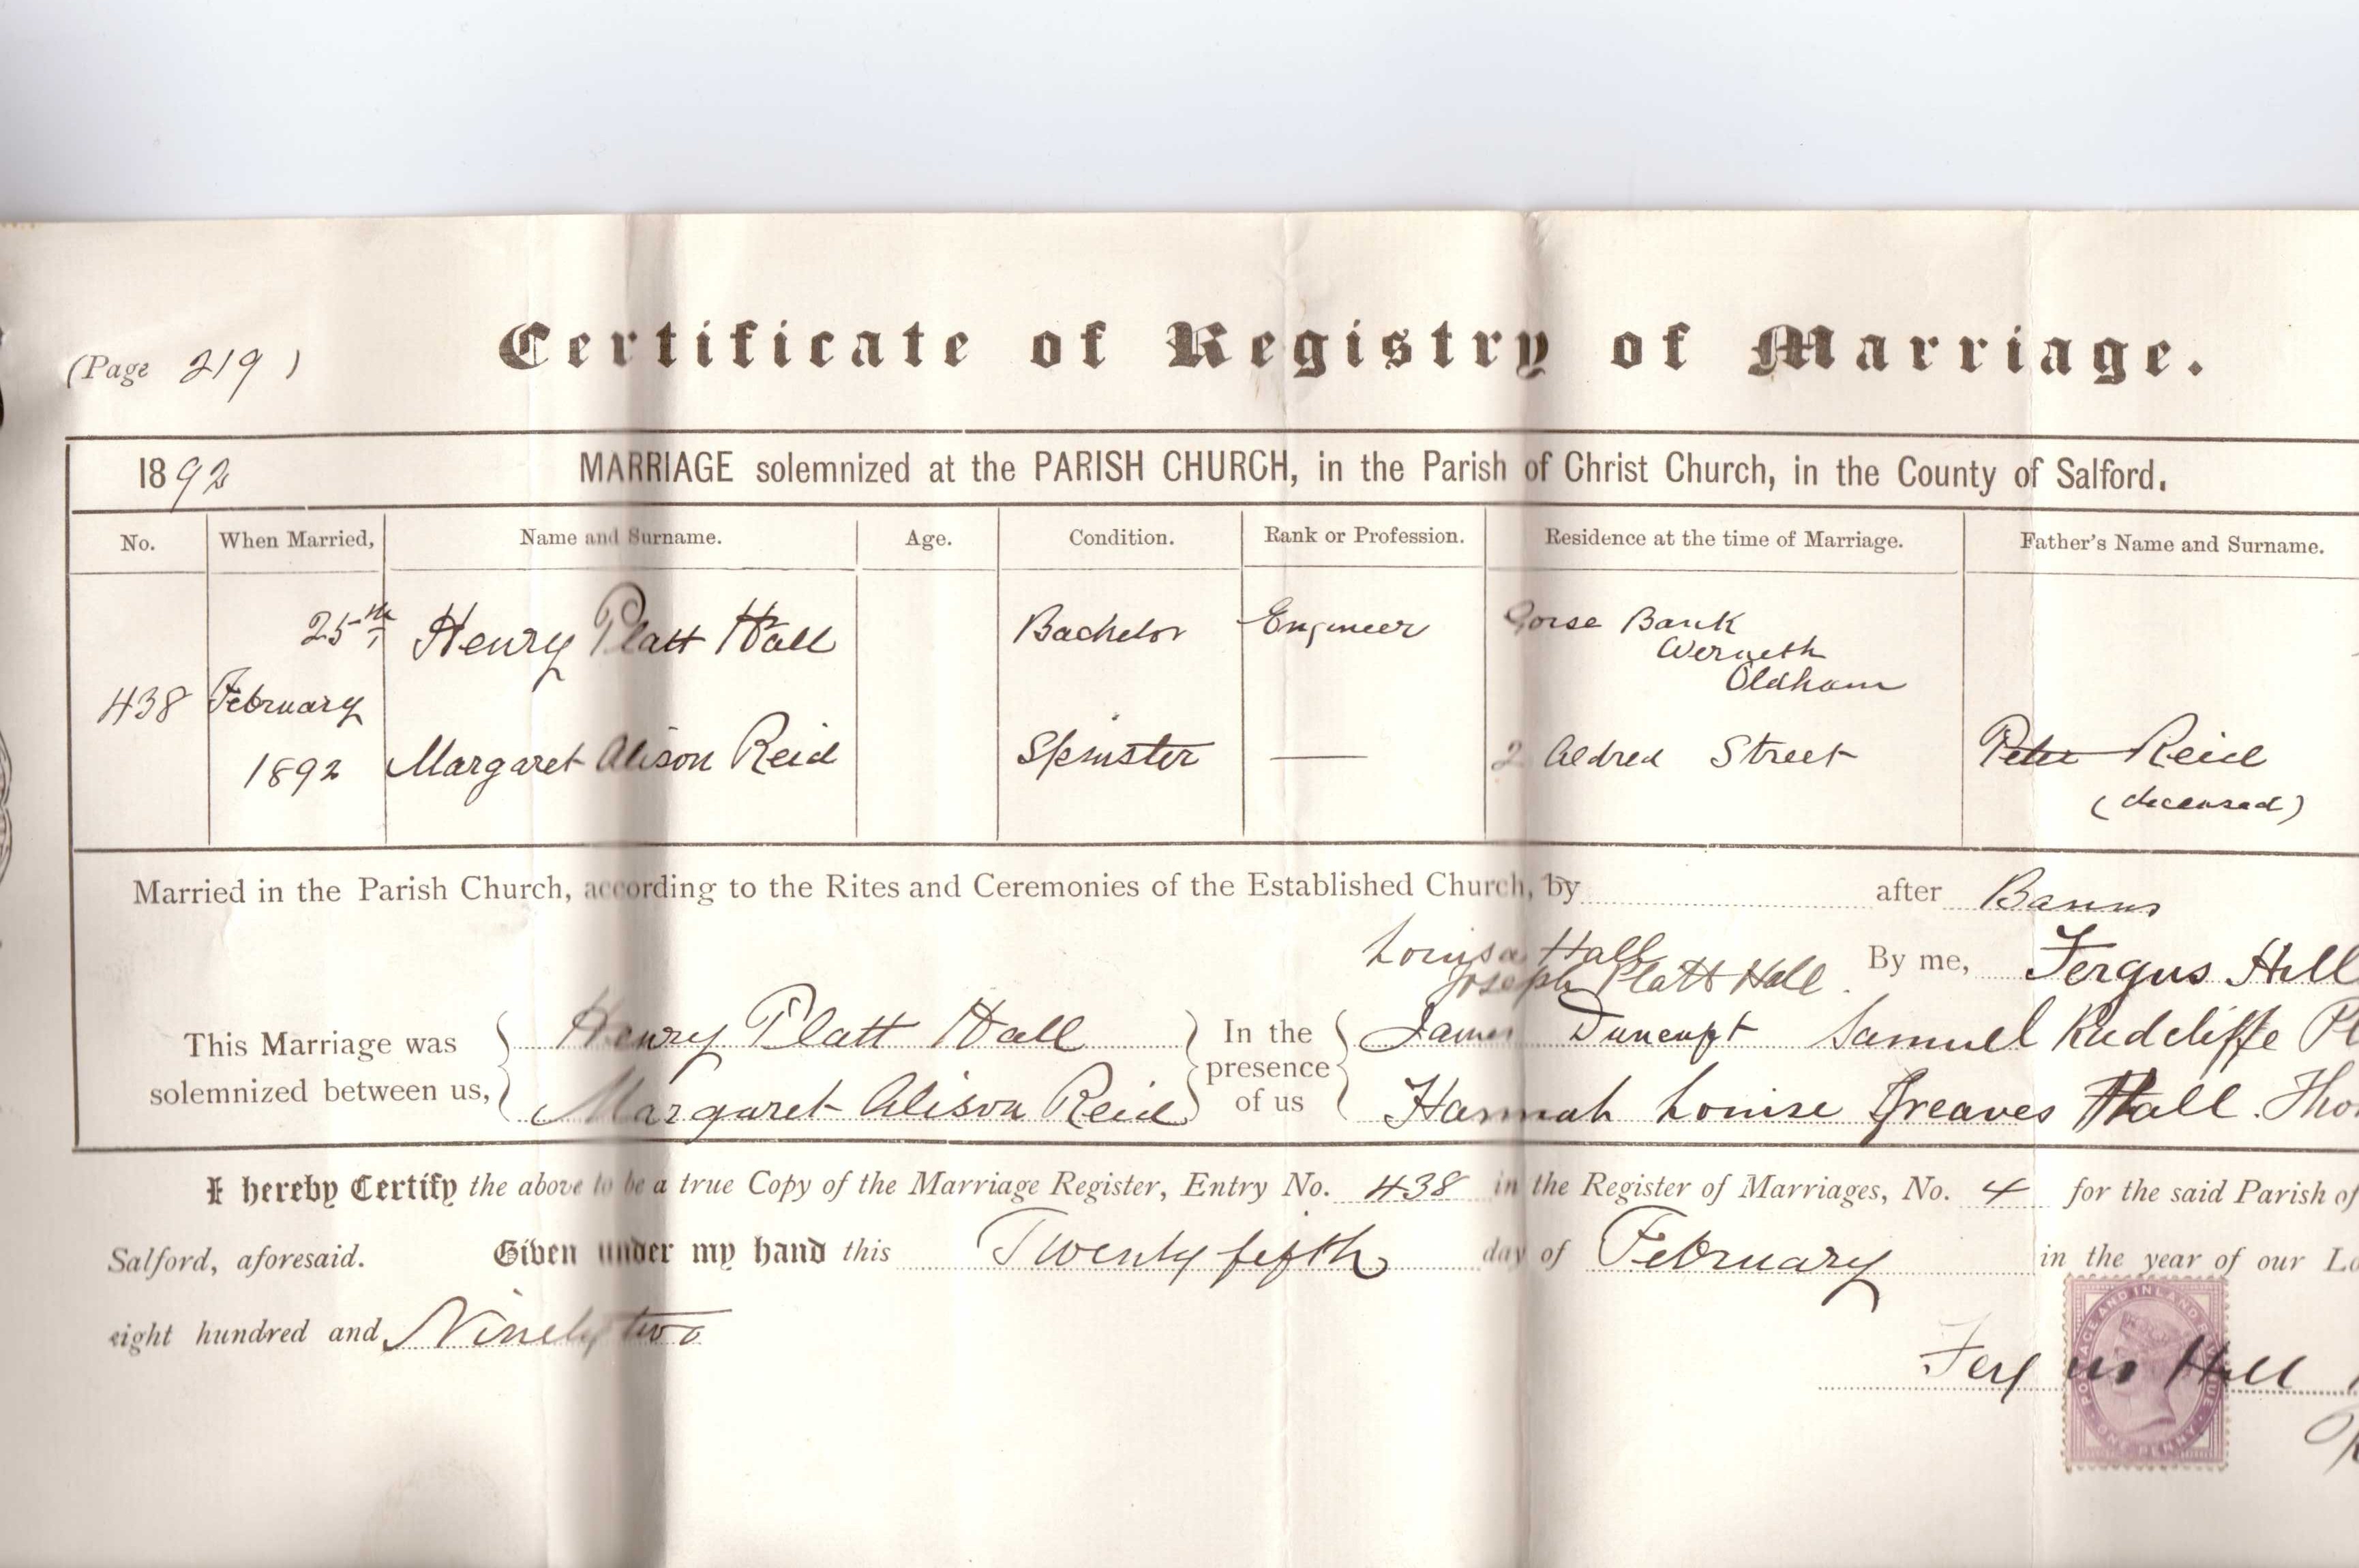 (Page 219)
Certificate of Registry of Marriage.
1892 MARRIAGE solemnized at the PARISH CHURCH, in the Parish of Christ Church, in the County of Salford.
No. When Married, Name and Surname. Age. Condition. Rank or Profession. Residence at the time of Marriage. Father's Name and Surname.
25th Henry Platt Hall Bachelor Engineer Gorse Bank
Werneth
Oldham
438 February
1892 Margaret Alison Reid Spinster — 2 Aldred Street Peter Reid
(deceased)
Married in the Parish Church, according to the Rites and Ceremonies of the Established Church, by after Banns
Louisa Hall
Joseph Platt Hall. By me, Fergus Hill
This Marriage was solemnized between us, Henry Platt Hall In the presence of us James Duncuft Samuel Radcliffe Pl
Margaret Alison Reid Hannah Louise Greaves Hall. Tho
I hereby Certify the above to be a true Copy of the Marriage Register, Entry No. 438 in the Register of Marriages, No. 4 for the said Parish of
Salford, aforesaid. Given under my hand this Twenty fifth day of February in the year of our Lo
eight hundred and Ninety two
Fergus Hill
POSTAGE AND INLAND REVENUE
ONE PENNY